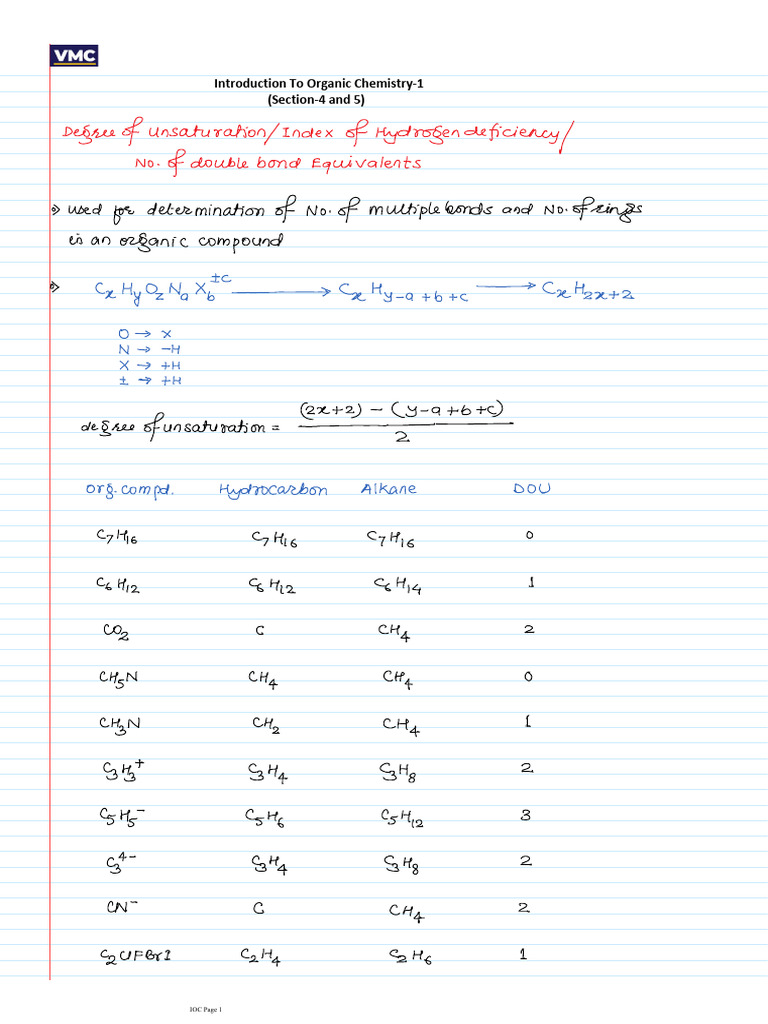 VMC
Introduction To Organic Chemistry-1
(Section-4 and 5)
Degree of Unsaturation/Index of Hydrogen deficiency/
No. of double bond Equivalents
⇒ used for determination of No. of multiple bonds and No. of rings
is an organic compound
⇒ CₓHᵧO_zNₐX_b^±c ⟶ CₓH_y-a+b+c ⟶ CₓH₂ₓ₊₂
O → x
N → -H
X → +H
± → +H
degree of unsaturation = (2x+2) - (y-a+b+c) / 2
Org. compd. Hydrocarbon Alkane DOU
C₇H₁₆ C₇H₁₆ C₇H₁₆ 0
C₆H₁₂ C₆H₁₂ C₆H₁₄ 1
CO₂ C CH₄ 2
CH₅N CH₄ CH₄ 0
CH₃N CH₂ CH₄ 1
C₃H₃⁺ C₃H₄ C₃H₈ 2
C₅H₅⁻ C₅H₆ C₅H₁₂ 3
C₃⁴⁻ C₃H₄ C₃H₈ 2
CN⁻ C CH₄ 2
C₂ClFBrI C₂H₄ C₂H₆ 1
IOC Page 1